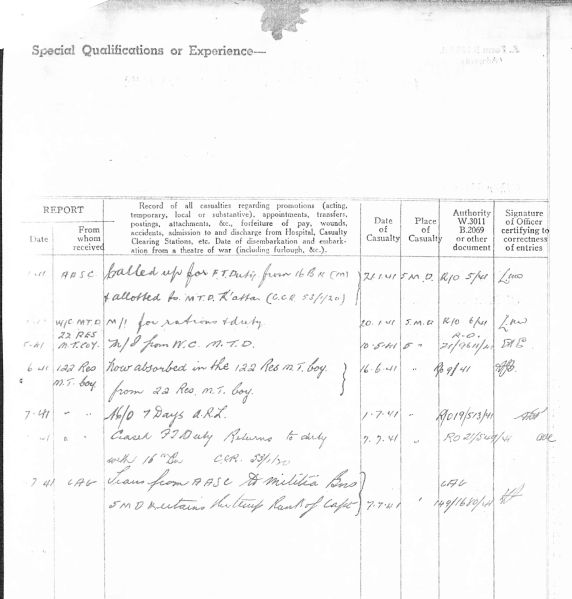 Special Qualifications or Experience—
REPORT
Date
From whom received
Record of all casualties regarding promotions (acting,
temporary, local or substantive), appointments, transfers,
postings, attachments, &c., forfeiture of pay, wounds,
accidents, admission to and discharge from Hospital, Casualty
Clearing Stations, etc. Date of disembarkation and embark-
ation from a theatre of war (including furlough, &c.).
Date of Casualty
Place of Casualty
Authority W.3011 B.2069 or other document
Signature of Officer certifying to correctness of entries
AASC Called up for F.T. Duty from 16 Bn (M) 21.1.41 5 M.D. R/O 5/41
& allotted to M.T.D. K'atta (C.C.R. 53/1/20)
W/C M.T.D M/I for rations & duty 20.1.41 5 M.D R/O 6/41
22 RES
M.T. Coy. M/I from W.C. M.T.D. 10.5.41 5 "
6.41 122 Res Now absorbed in the 122 Res M.T. Coy. 16.6.41 " RO 9/41
M.T. Coy from 22 Res M.T. Coy.
7.41 " " 7 Days A.R.L. 1.7.41 " R/O 19/513/41
" " Ceases FT Duty Returns to duty 7.7.41 " RO 21/549/41
with 16th Bn C.C.R. 53/1/20
7.41 CAG Trans from AASC to Militia Bns CAG
5 M D & retains the temp Rank of Capt 7.7.41 " 149/1680/41